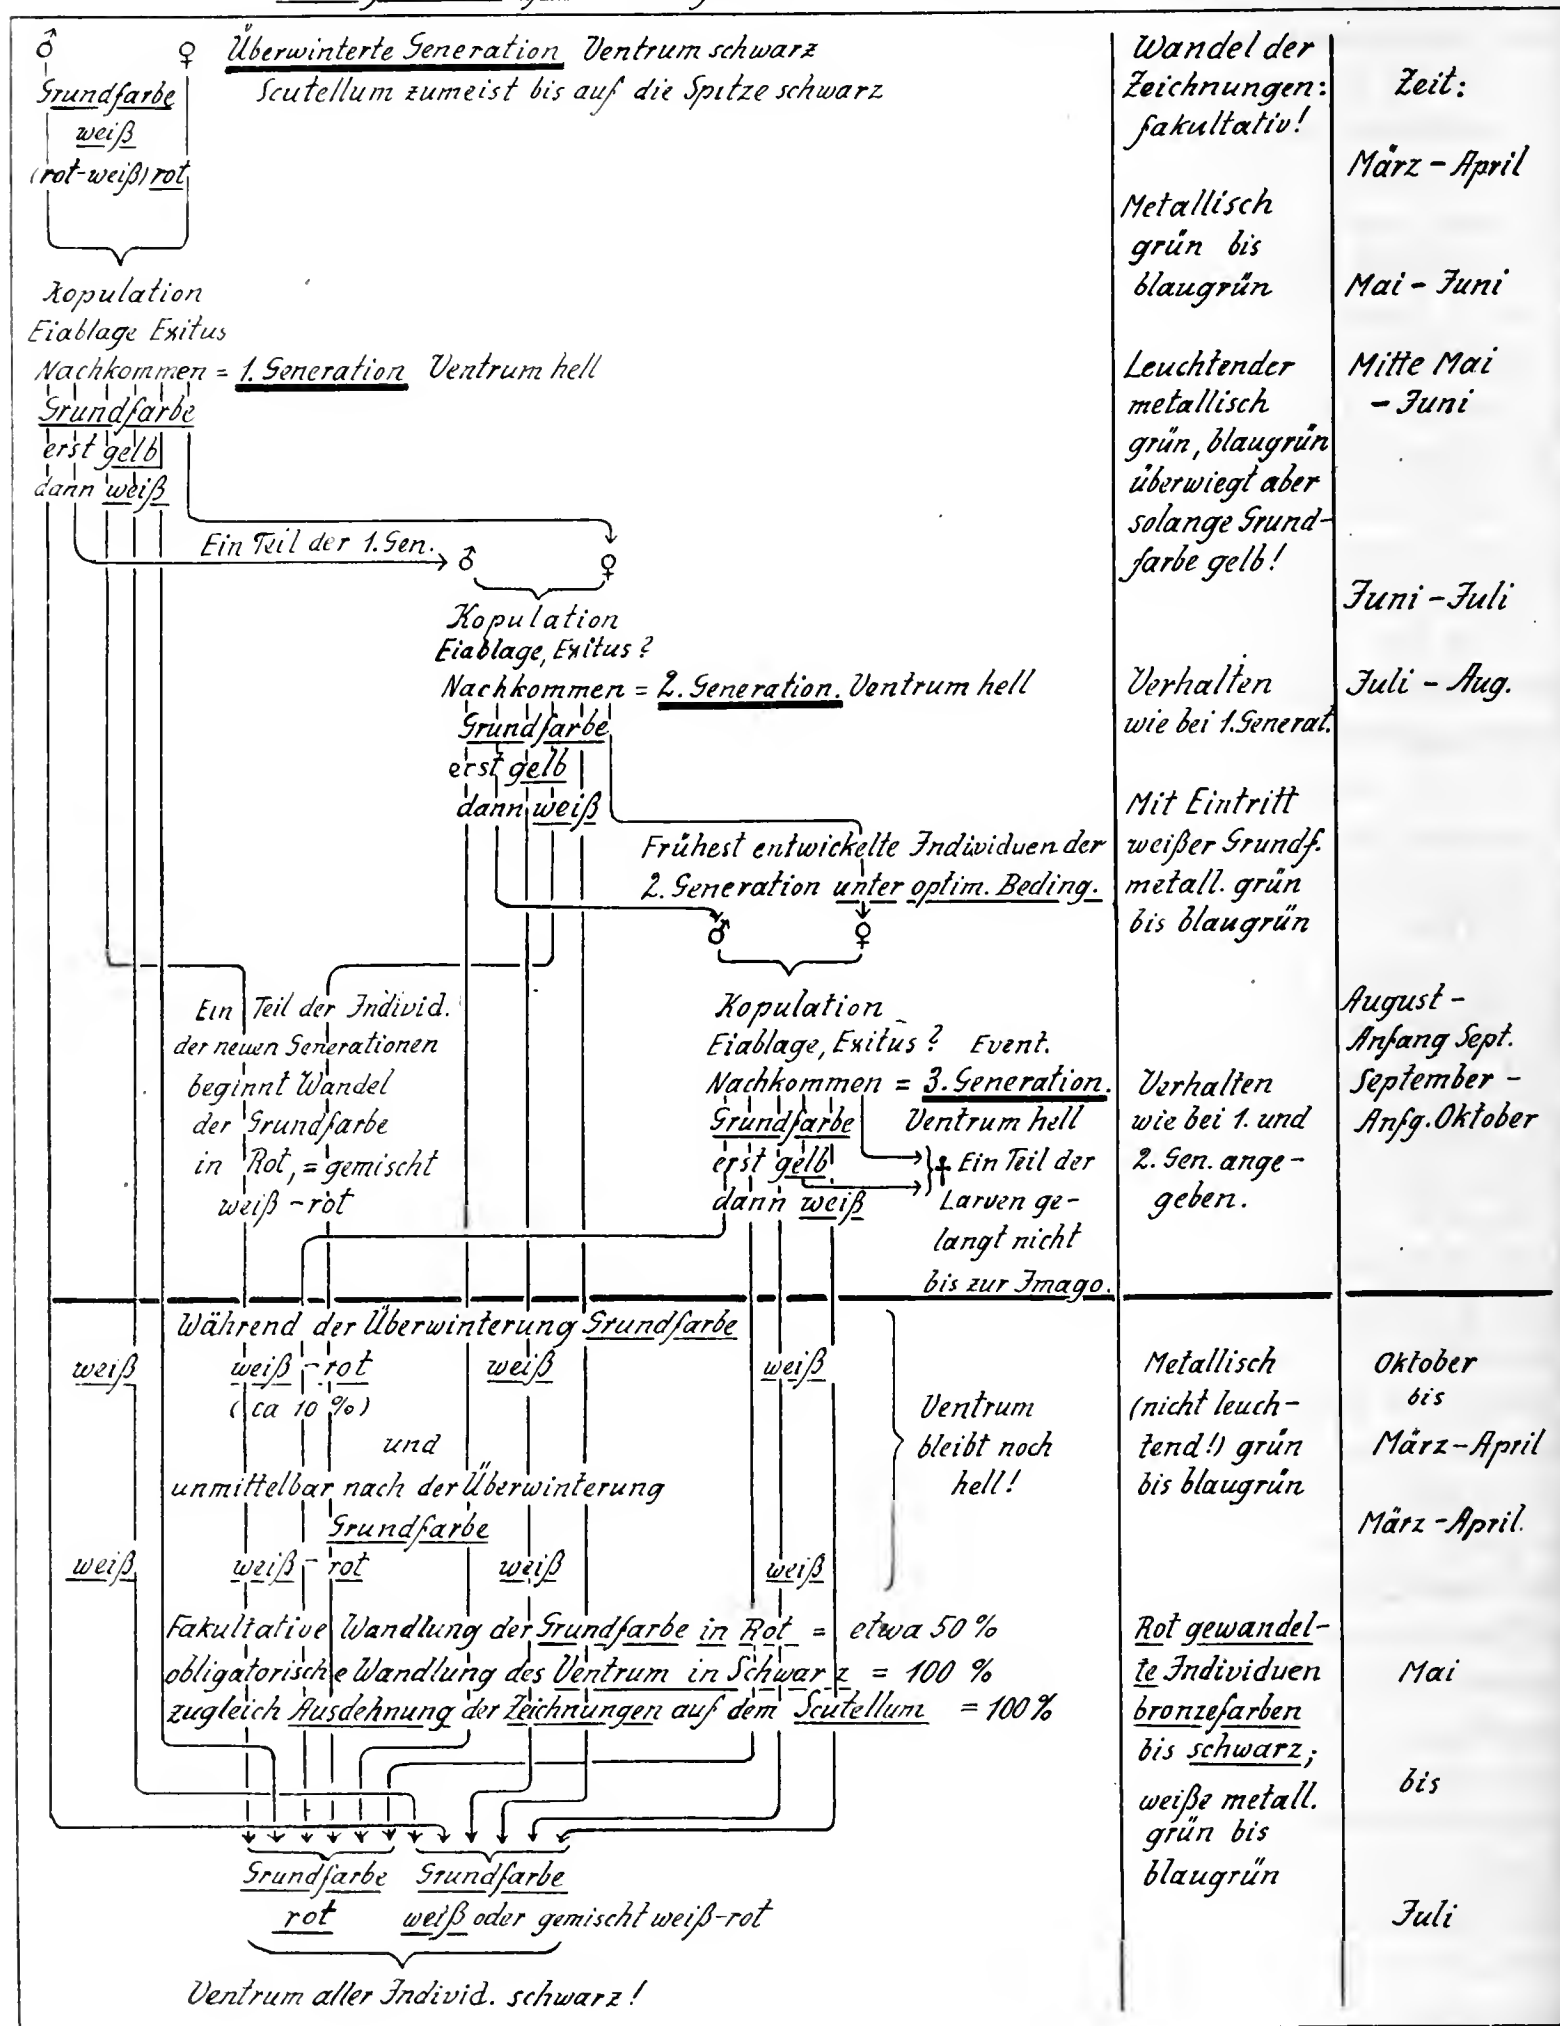 ♂ ♀ Überwinterte Generation Ventrum schwarz
Scutellum zumeist bis auf die Spitze schwarz
Grundfarbe
weiß
(rot-weiß) rot
Kopulation
Eiablage Exitus
Nachkommen = 1. Generation Ventrum hell
Grundfarbe
erst gelb
dann weiß
Ein Teil der 1. Gen. ♂ ♀
Kopulation
Eiablage, Exitus?
Nachkommen = 2. Generation. Ventrum hell
Grundfarbe
erst gelb
dann weiß
Frühest entwickelte Individuen der
2. Generation unter optim. Beding.
♂ ♀
Ein Teil der Individ.
der neuen Generationen
beginnt Wandel
der Grundfarbe
in Rot, = gemischt
weiß-rot
Kopulation
Eiablage, Exitus? Event.
Nachkommen = 3. Generation.
Grundfarbe Ventrum hell
erst gelb
dann weiß
Ein Teil der
Larven ge-
langt nicht
bis zur Imago.
Während der Überwinterung Grundfarbe
weiß weiß-rot weiß weiß
(ca 10 %)
und
unmittelbar nach der Überwinterung
Grundfarbe
weiß weiß-rot weiß weiß
Ventrum
bleibt noch
hell!
Fakultative Wandlung der Grundfarbe in Rot = etwa 50 %
obligatorische Wandlung des Ventrum in Schwarz = 100 %
zugleich Ausdehnung der Zeichnungen auf dem Scutellum = 100%
Grundfarbe Grundfarbe
rot weiß oder gemischt weiß-rot
Ventrum aller Individ. schwarz!
Wandel der
Zeichnungen:
fakultativ!
Metallisch
grün bis
blaugrün
Leuchtender
metallisch
grün, blaugrün
überwiegt aber
solange Grund-
farbe gelb!
Verhalten
wie bei 1. Generat.
Mit Eintritt
weißer Grundf.
metall. grün
bis blaugrün
Verhalten
wie bei 1. und
2. Gen. ange-
geben.
Metallisch
(nicht leuch-
tend!) grün
bis blaugrün
Rot gewandel-
te Individuen
bronzefarben
bis schwarz;
weiße metall.
grün bis
blaugrün
Zeit:
März - April
Mai - Juni
Mitte Mai
- Juni
Juni - Juli
Juli - Aug.
August -
Anfang Sept.
September -
Anfg. Oktober
Oktober
bis
März-April
März-April.
Mai
bis
Juli